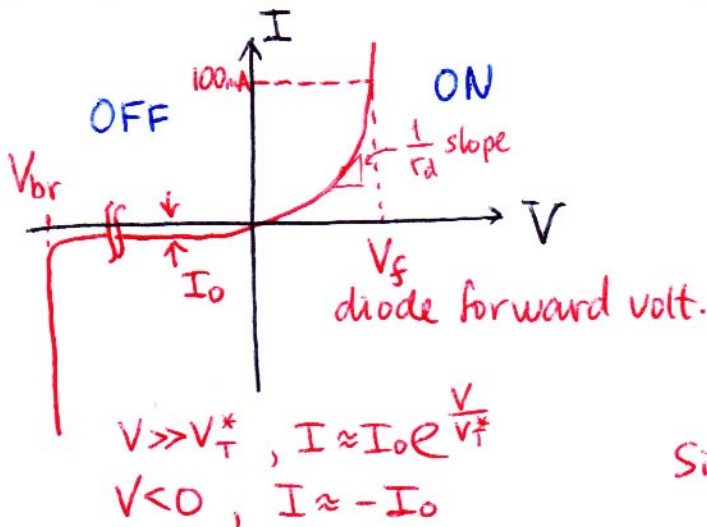 I
100mA
OFF
ON
1/r_d slope
V_br
V
I_0
V_f
diode forward volt.
V >> V_T^*, I ≈ I_0 e^(V/V_T^*)
V < 0, I ≈ -I_0